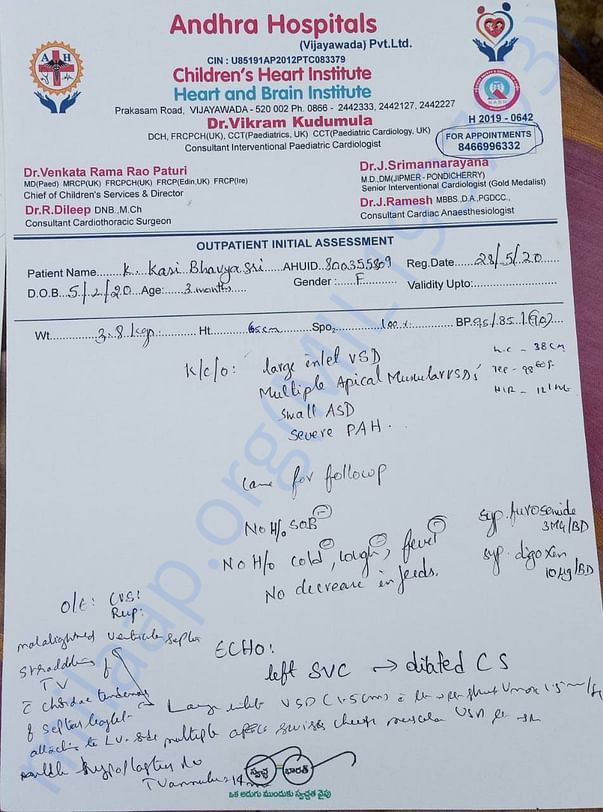 Andhra Hospitals
(Vijayawada) Pvt.Ltd.
CIN : U85191AP2012PTC083379
Children's Heart Institute
Heart and Brain Institute
Prakasam Road, VIJAYAWADA - 520 002 Ph. 0866 - 2442333, 2442127, 2442227
H 2019 - 0642
Dr.Vikram Kudumula
DCH, FRCPCH(UK), CCT(Paediatrics, UK) CCT(Paediatric Cardiology, UK)
Consultant Interventional Paediatric Cardiologist
FOR APPOINTMENTS
8466996332
Dr.Venkata Rama Rao Paturi
MD(Paed) MRCP(UK) FRCPCH(UK) FRCP(Edin,UK) FRCP(Ire)
Chief of Children's Services & Director
Dr.R.Dileep DNB.,M.Ch
Consultant Cardiothoracic Surgeon
Dr.J.Srimannarayana
M.D.,DM(JIPMER - PONDICHERRY)
Senior Interventional Cardiologist (Gold Medalist)
Dr.J.Ramesh MBBS.,D.A.,PGDCC.,
Consultant Cardiac Anaesthesiologist
OUTPATIENT INITIAL ASSESSMENT
Patient Name......K. Kasi Bhavya sri.....AHUID..800355809 Reg.Date.....28/5/20
D.O.B..5/2/20..Age:.....3 months..... Gender :.....F..... Validity Upto:
Wt.....3.8 kgs..... Ht.....65cm.....Spo2.....100 %.....BP.95/85
H.C - 38cm
K/c/o: large inlet VSD
Multiple Apical Muscular VSDs
small ASD
severe PAH.
Came for followup
No H/o SOB
No H/o cold, cough, fever
No decrease in feeds.
syp. furosemide
3MG/BD
syp. digoxin
10µg/BD
o/e: CVS:
Resp:
malalignment ventricular septa
straddling of
TV
c chordae tendenae
of septal leaflet
attaching to LV side
ECHO:
left SVC → dilated CS
Large inlet VSD
multiple apical swiss cheese muscular VSD
TV annulus: 14
స్వచ్ఛ భారత్
ఒక అడుగు ముందుకు స్వచ్ఛత వైపు
milaap.org